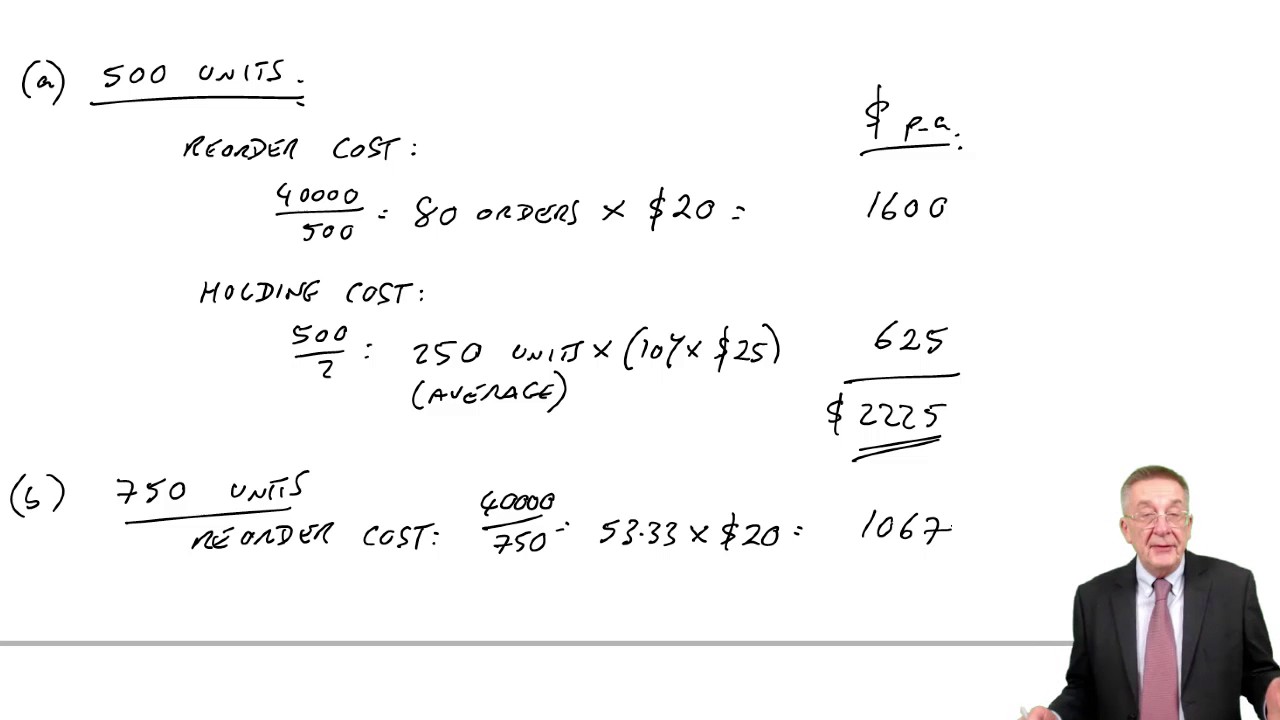 (a) 500 UNITS.
$ p.a.
REORDER COST:
40000/500 = 80 ORDERS × $20 = 1600
HOLDING COST:
500/2 = 250 UNITS × (10% × $25) 625
(AVERAGE)
$ 2225
(b) 750 UNITS
REORDER COST: 40000/750 = 53.33 × $20 = 1067